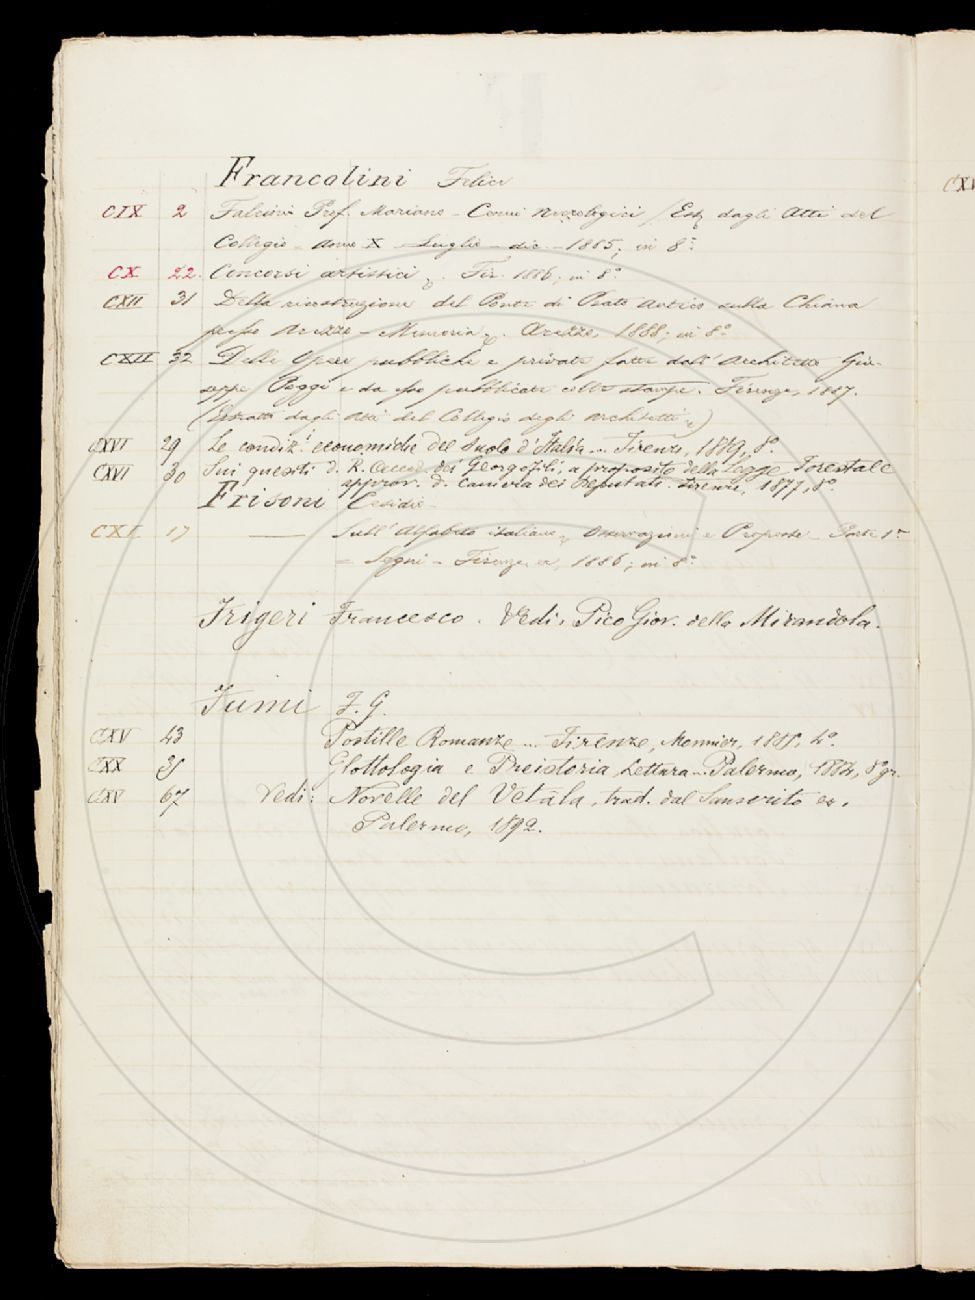 Francolini Felice
CIX 2 Falcini Prof. Mariano - Cenni Necrologici / Est. dagli Atti del
Collegio - Anno X - Luglio - dic. - 1885; in 8º
CX 22. Concorsi artistici Fir. 1886, in 8º
CXII 31 Della ricostruzione del Ponte di Prato Antico sulla Chiana
presso Arezzo - Memoria Arezzo, 1888; in 8º
CXIII 32 Delle Opere pubbliche e private fatte dall'Architetto Giu-
seppe Poggi e da esso pubblicate colle stampe. Firenze, 1887.
(Estratto dagli Atti del Collegio degli Architetti)
CXVI 29 Le condiz.i economiche del suolo d'Italia... Firenze, 1869, 8º.
CXVI 30 Sui quesiti d. R. Accad. dei Georgofili, a proposito della Legge Forestale
approv. d. Camera dei Deputati. Firenze, 1877, 8º.
Frisoni Cesidio
CXI 17 — Sull'Alfabeto italiano Osservazioni e Proposte - Parte 1ª
= Segni - Firenze 1886; in 8º
Frigeri Francesco. Vedi, Pico Giov. della Mirandola.
Fumi F. G.
CXV 43 Postille Romanze ... Firenze, Monnier, 4º.
CXX Glottologia e Preistoria, Lettura... Palermo, 8º gr.
CXV 67 Vedi: Novelle del Vetâla, trad. dal Sanscrito ec.
Palermo, 1892.